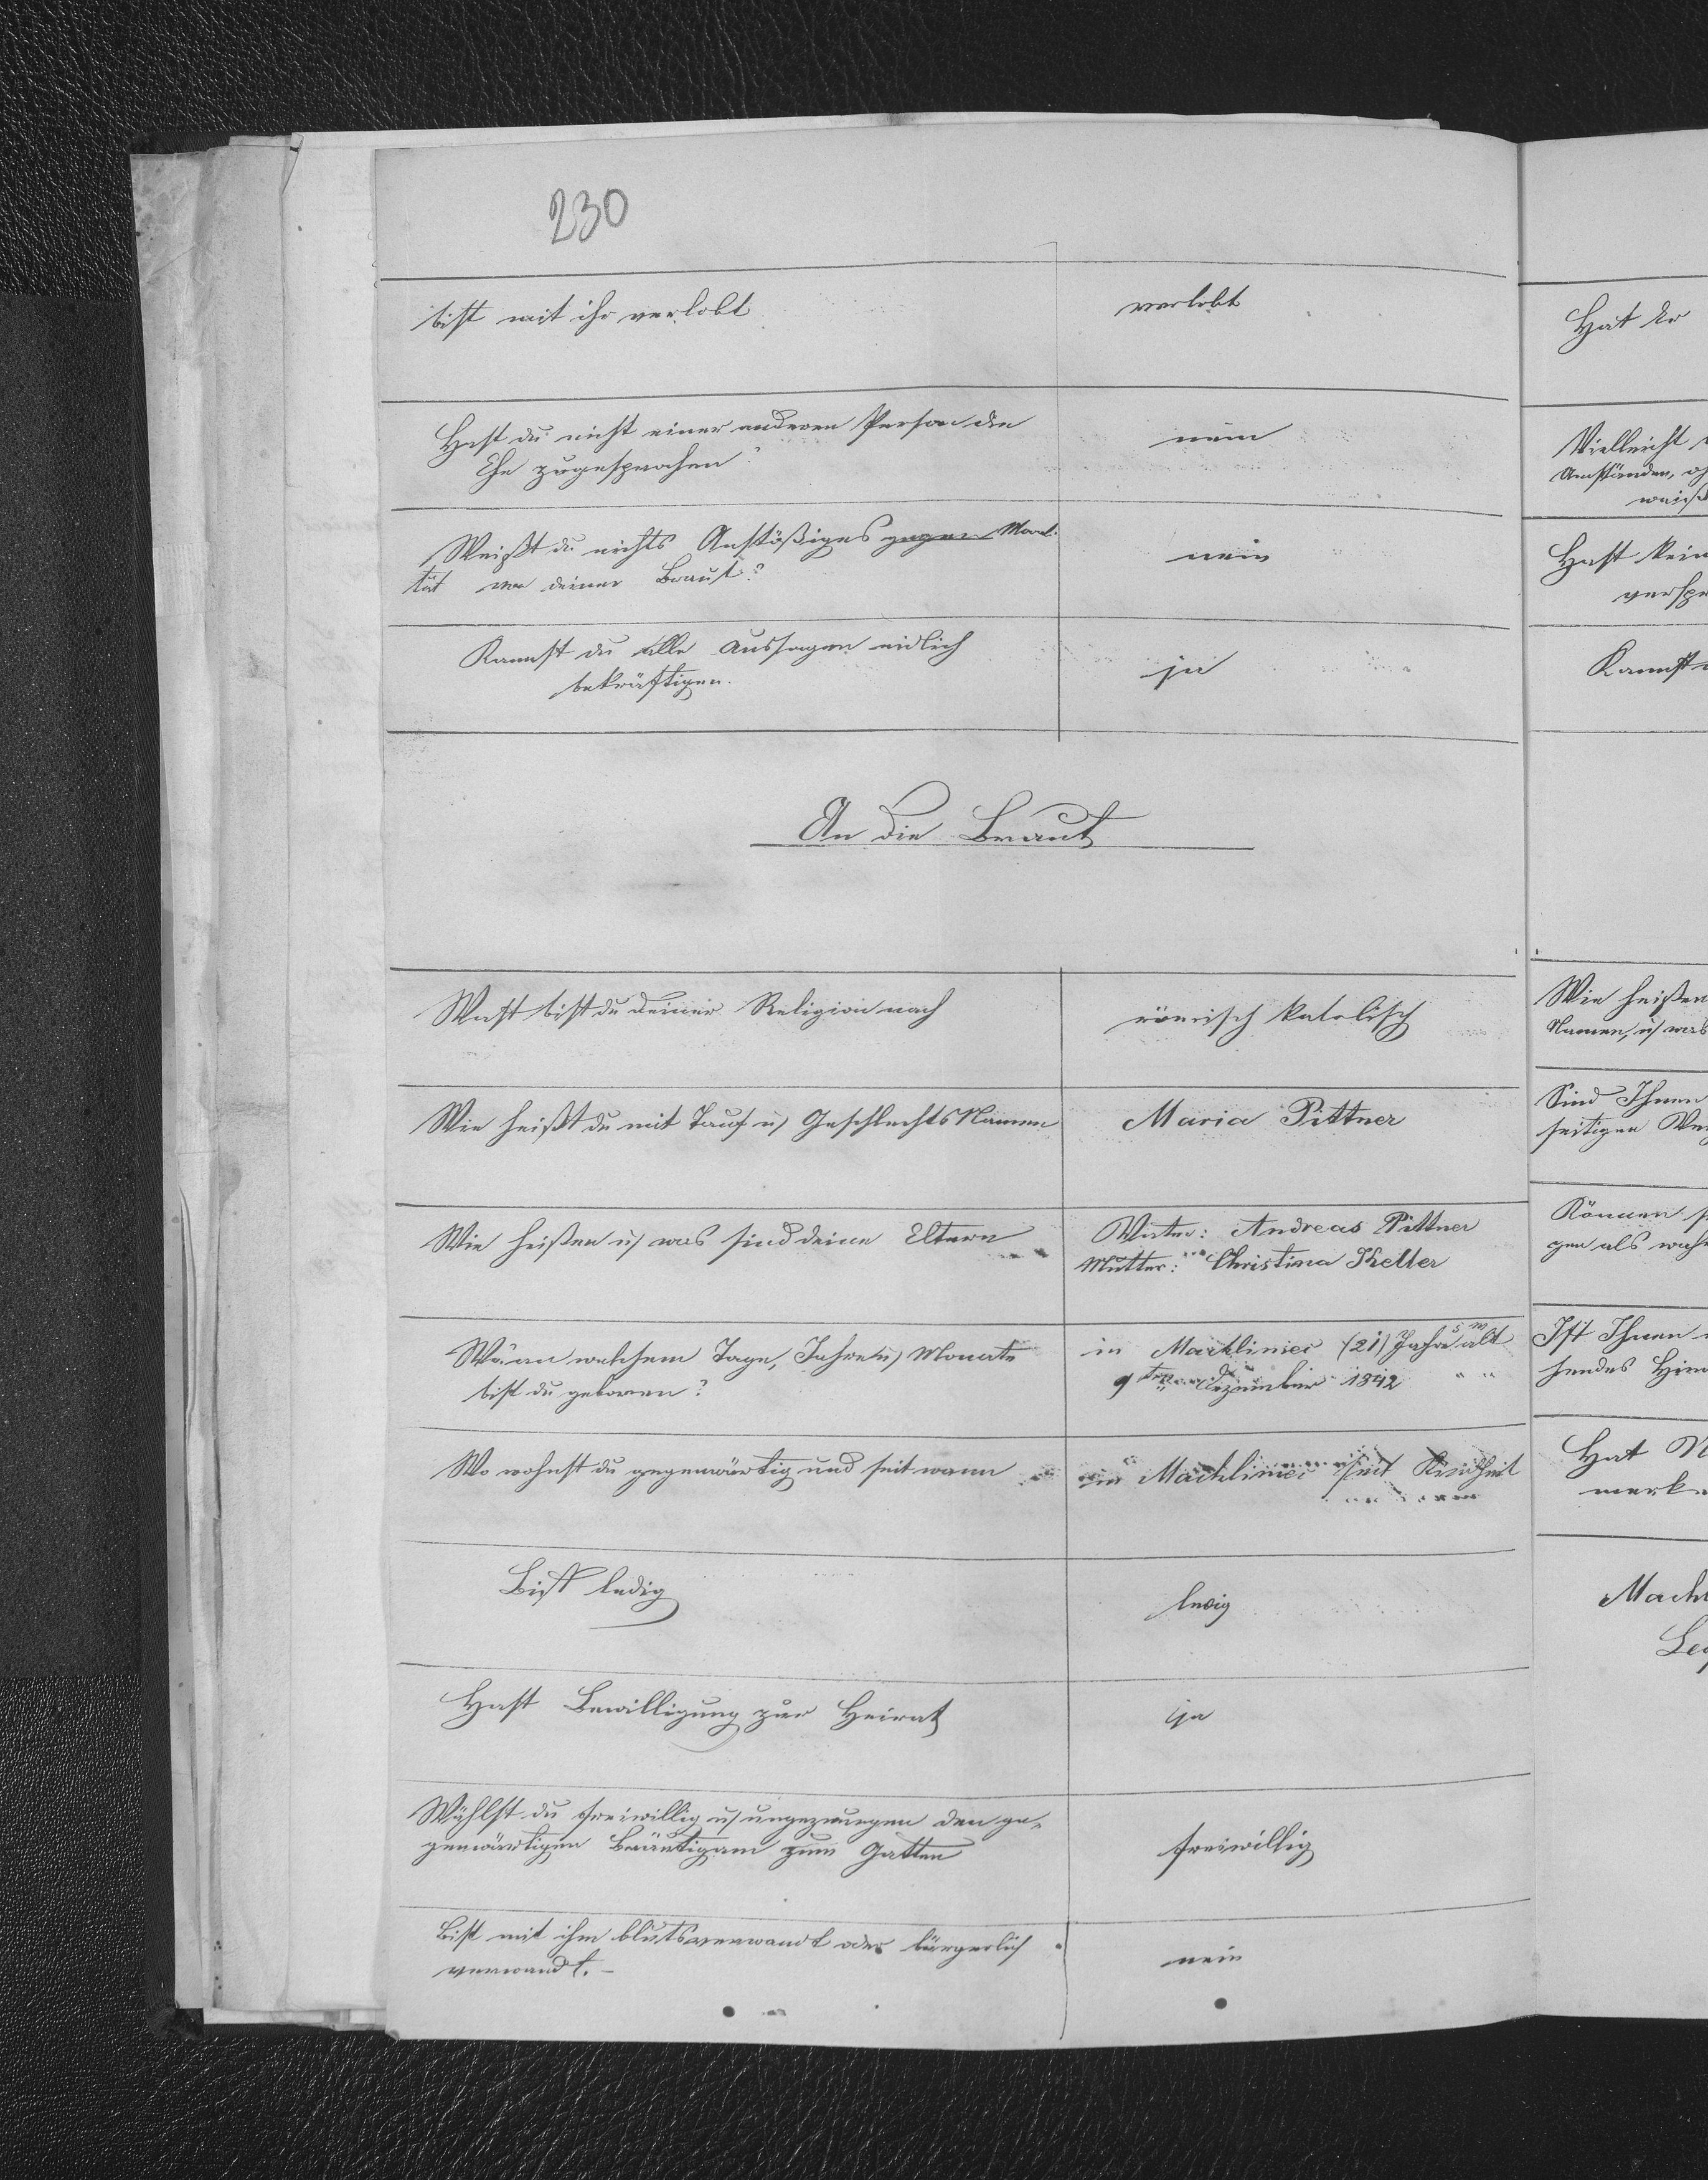 230
bist mit ihr verlobt
verlobt
Hast du nicht einer anderen Person die
Ehe zugesprochen?
nein
Weißt du nichts Anstößiges gegen Morali-
tät von deiner Braut?
nein
Kannst du alle Aussagen eidlich
bekräftigen.
ja
An die Braut
Was bist du deiner Religion nach
römisch katolisch
Wie heißt du mit Tauf u Geschlechts Namen
Maria Pittner
Wie heißen u was sind deine Eltern
Vater: Andreas Pittner
Mutter: Christina Keller
Wo an welchem Tage, Jahre u Monate
bist du geboren?
in Machliniec (21) Jahre alt
9ten Dezember 1842
Wo wohnst du gegenwärtig und seit wann
in Machliniec seit Kindheit
Bist ledig
ledig
Hast Bewilligung zur Heirat
ja
Wählst du freiwillig u ungezwungen den ge-
genwärtigen Bräutigam zum Gatten
freiwillig
Bist mit ihm blutsverwandt oder bürgerlich
verwandt. -
nein
Hat der
Vielleicht
Umständen,
Hast kein
Kannst
Wie heißen
Namen, u was
Sind Ihnen
seitigen
Können
gen als wahr
Ist Ihnen
Hat